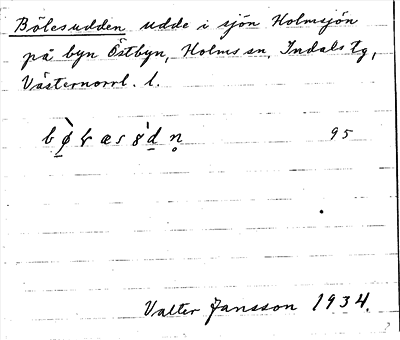 Bölesudden udde i sjön Holmsjön
på byn Östbyn, Holms sn, Indals tg,
Västernorrl. l.
95
Valter Jansson 1934.